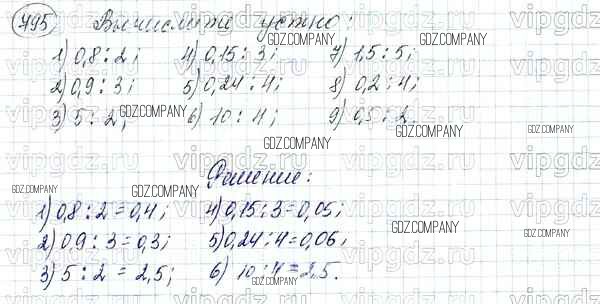 795 Вычислите устно:
1) 0,8 : 2; 4) 0,15 : 3; 7) 1,5 : 5;
2) 0,9 : 3; 5) 0,24 : 4; 8) 0,2 : 4;
3) 5 : 2; 6) 10 : 4; 9) 0,5 : 2.
Решение:
1) 0,8 : 2 = 0,4; 4) 0,15 : 3 = 0,05;
2) 0,9 : 3 = 0,3; 5) 0,24 : 4 = 0,06;
3) 5 : 2 = 2,5; 6) 10 : 4 = 2,5.
GDZ.COMPANY
vipgdz.ru